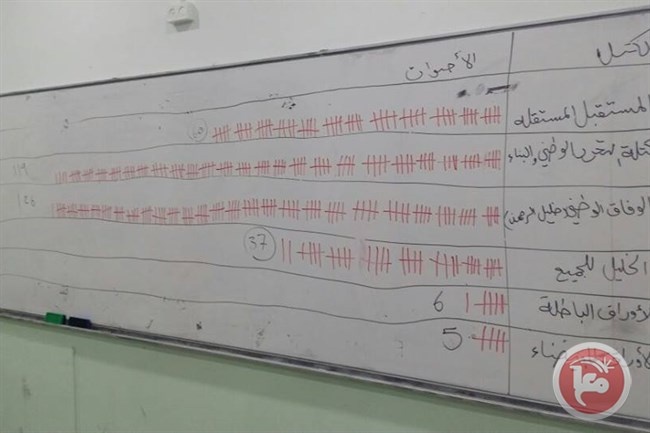 الكتل الأصوات
المستقبل المستقلة
كتلة التحرر الوطني والبناء 119
الوفاق الوطني وخليل الرحمن
الخليل للجميع 37
الأوراق الباطلة 6
5
معا